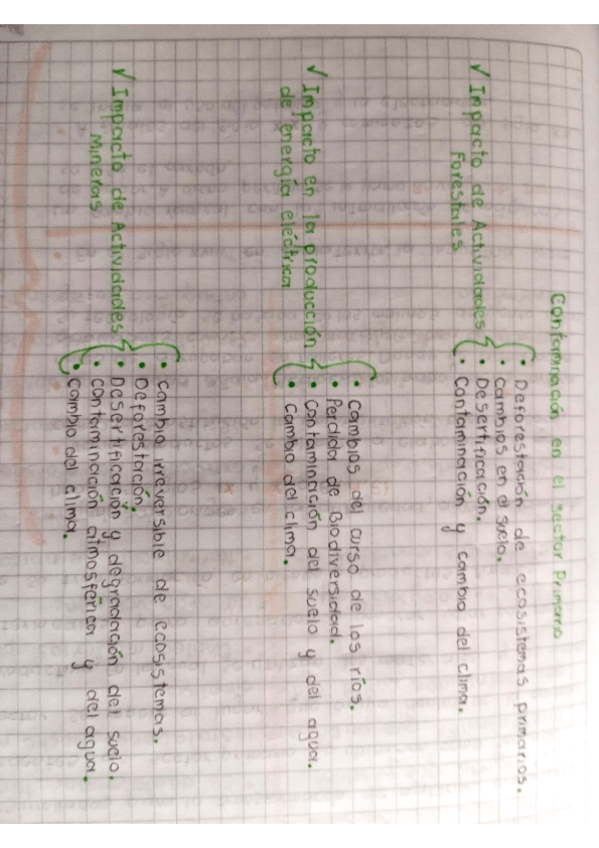 Contaminación en el sector Primario
✓ Impacto de Actividades
Forestales
• Deforestación de ecosistemas primarios.
• cambios en el suelo.
• Desertificación.
• Contaminación y cambio del clima.
✓ Impacto en la producción
de energía eléctrica
• Cambios del curso de los ríos.
• Perdida de Biodiversidad.
• Contaminación del suelo y del agua.
• Cambio del clima.
✓ Impacto de Actividades
Mineras
• Cambio irreversible de ecosistemas.
• Deforestación.
• Desertificación y degradación del suelo.
• contaminación atmosférica y del agua.
• Cambio del clima.